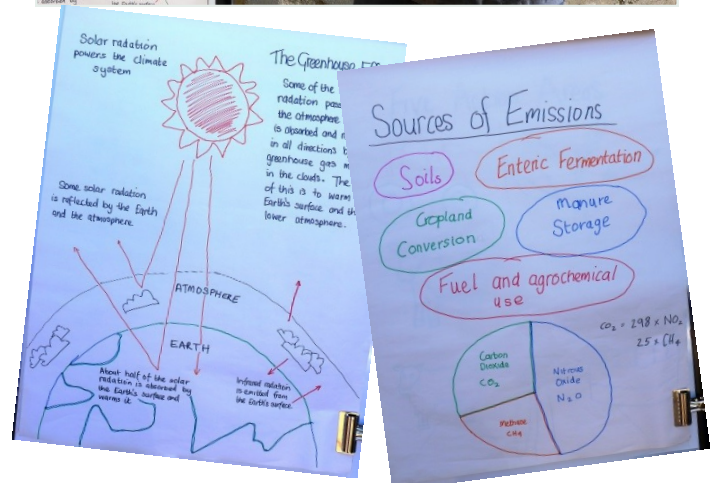 Solar radation
powers the climate
system
The Greenhouse
Some of the
radation
the atmosphere
is absorbed and
in all directions
greenhouse gas
in the clouds. The
of this is to warm
Earth's surface and
lower atmosphere.
Some solar radation
is reflected by the Earth
and the atmosphere
ATMOSPHERE
EARTH
About half of the solar
radation is absorbed by
the Earth's surface and
warms it
Infrared radation
is emitted from
the Earth's surface
Sources of Emissions
Soils
Enteric Fermentation
Cropland
Conversion
Manure
Storage
Fuel and agrochemical
use
CO₂ = 298 x NO₂
25 x CH₄
Carbon
Dioxide
CO₂
Nitrous
Oxide
N₂O
Methane
CH₄